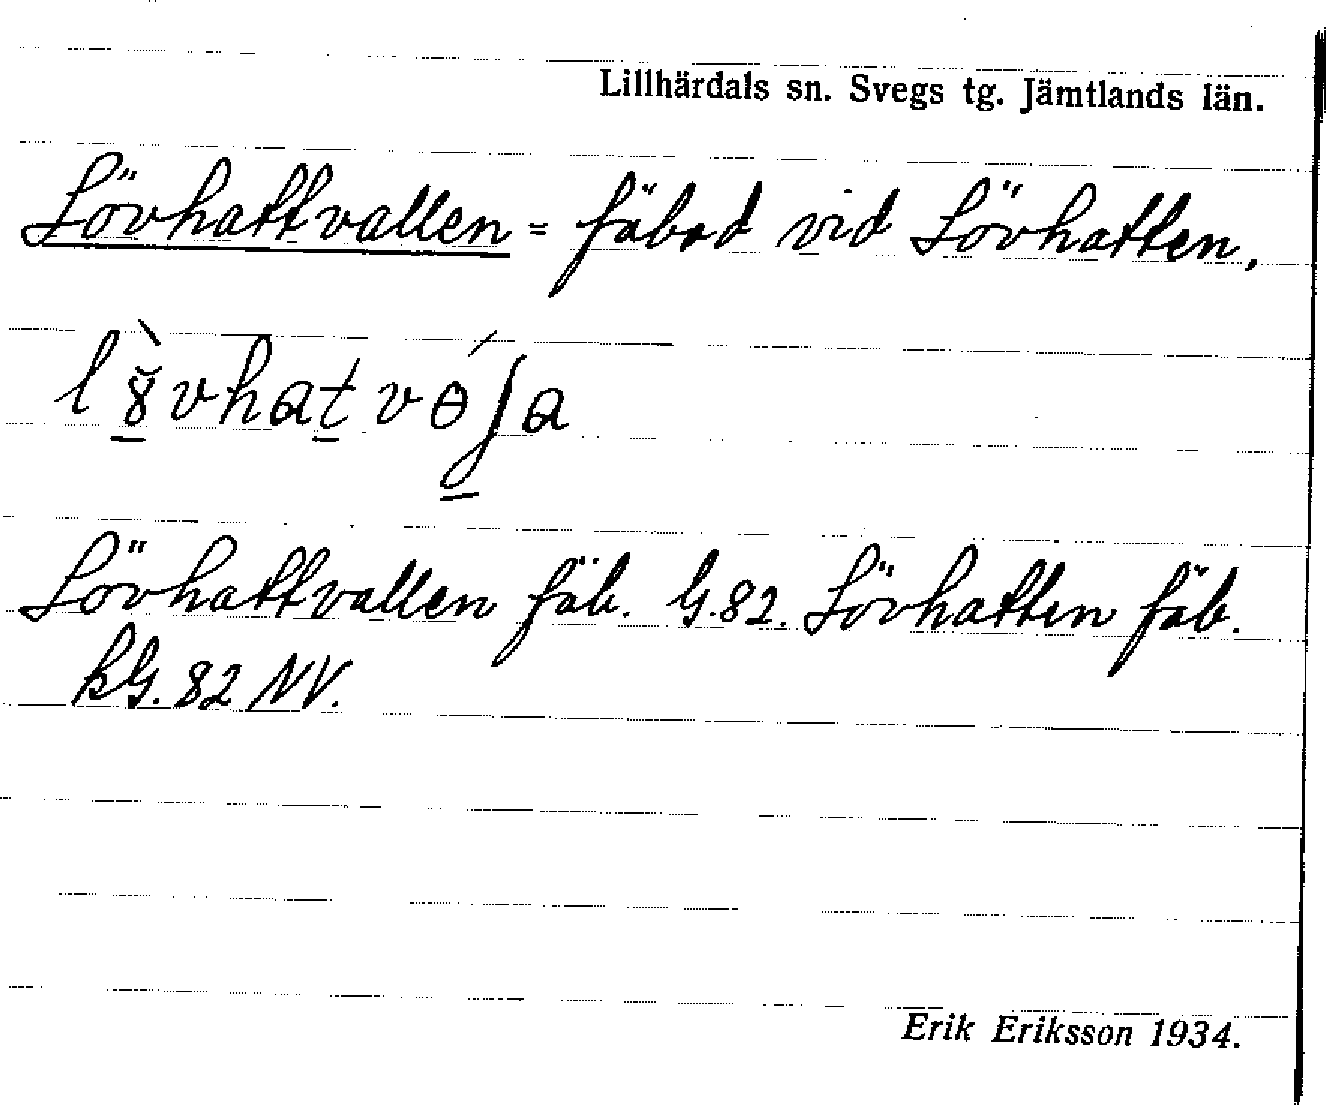 Lillhärdals sn. Svegs tg. Jämtlands län.
Lövhattvallen = fäbod vid Lövhatten,
Lövhattvallen fäb. G.82. Lövhatten fäb.
kG. 82 NV.
Erik Eriksson 1934.